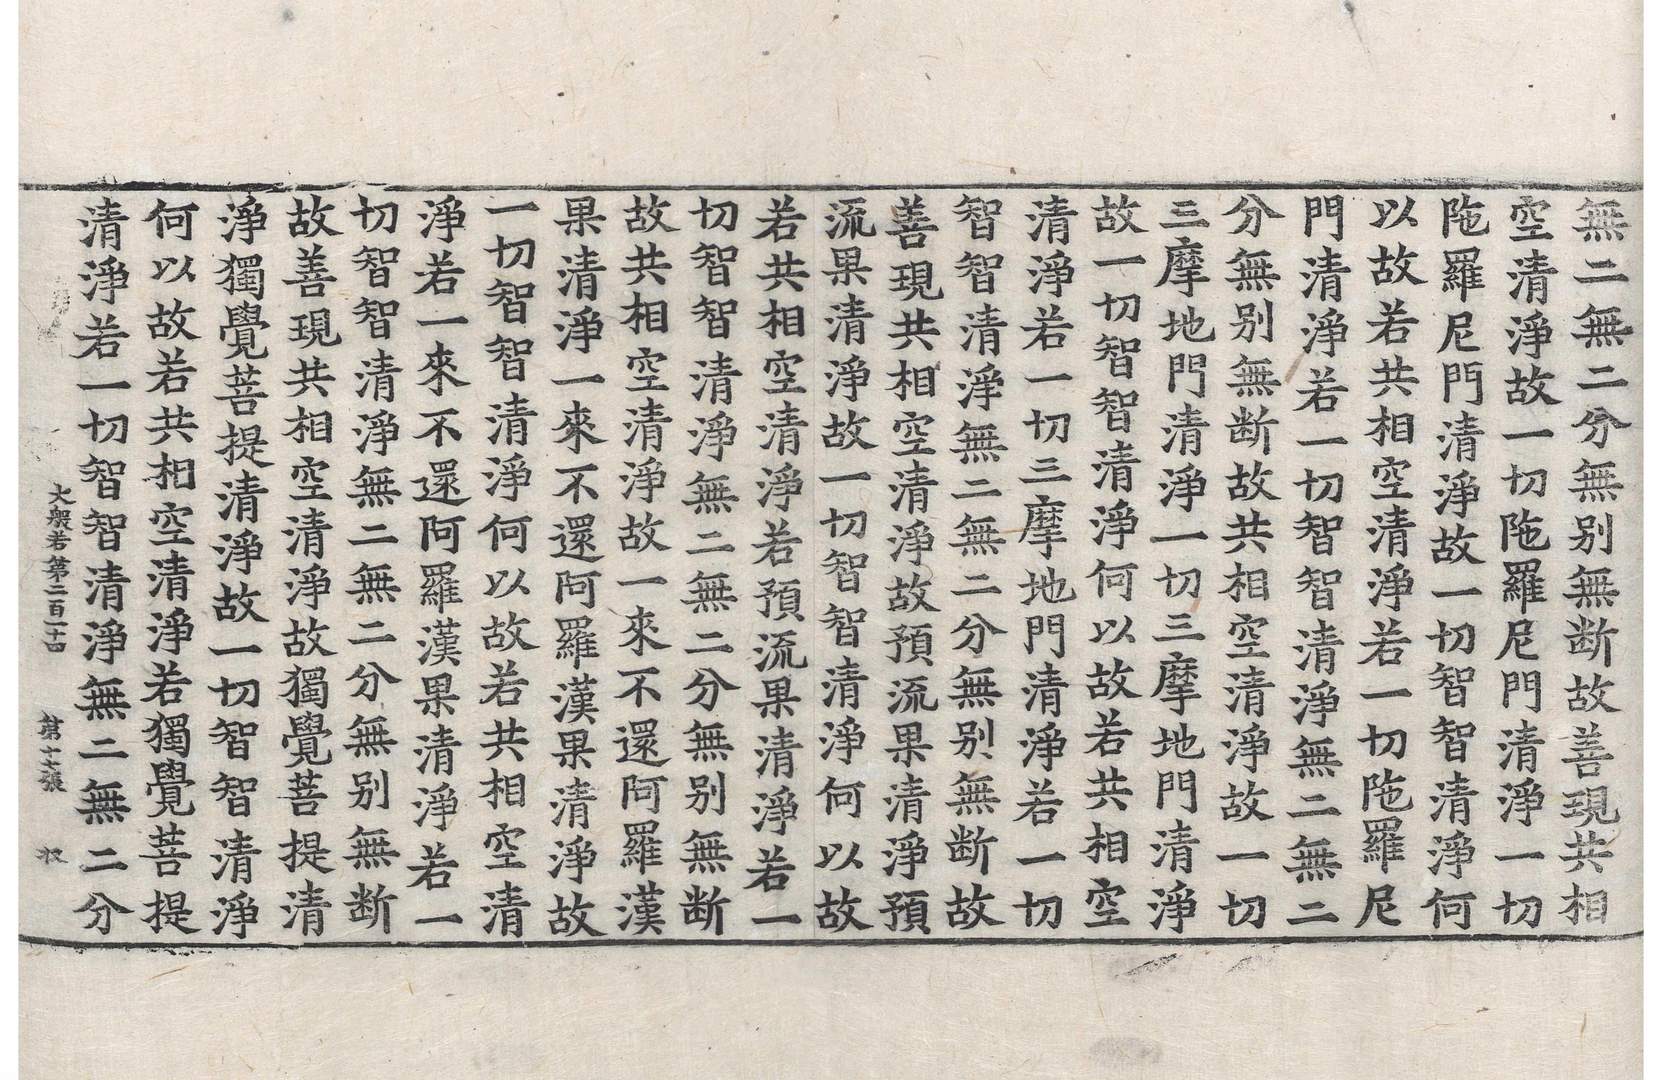 無二無二分無别無断故善現共相
空清淨故一切陁羅尼門清淨一切
陁羅尼門清淨故一切智智清淨何
以故若共相空清淨若一切陁羅尼
門清淨若一切智智清淨無二無二
分無别無断故共相空清淨故一切
三摩地門清淨一切三摩地門清淨
故一切智智清淨何以故若共相空
清淨若一切三摩地門清淨若一切
智智清淨無二無二分無别無断故
善現共相空清淨故預流果清淨預
流果清淨故一切智智清淨何以故
若共相空清淨若預流果清淨若一
切智智清淨無二無二分無别無断
故共相空清淨故一來不還阿羅漢
果清淨一來不還阿羅漢果清淨故
一切智智清淨何以故若共相空清
淨若一來不還阿羅漢果清淨若一
切智智清淨無二無二分無别無断
故善現共相空清淨故獨覺菩提清
淨獨覺菩提清淨故一切智智清淨
何以故若共相空清淨若獨覺菩提
清淨若一切智智清淨無二無二分
大般若第二百一十四 第十七張